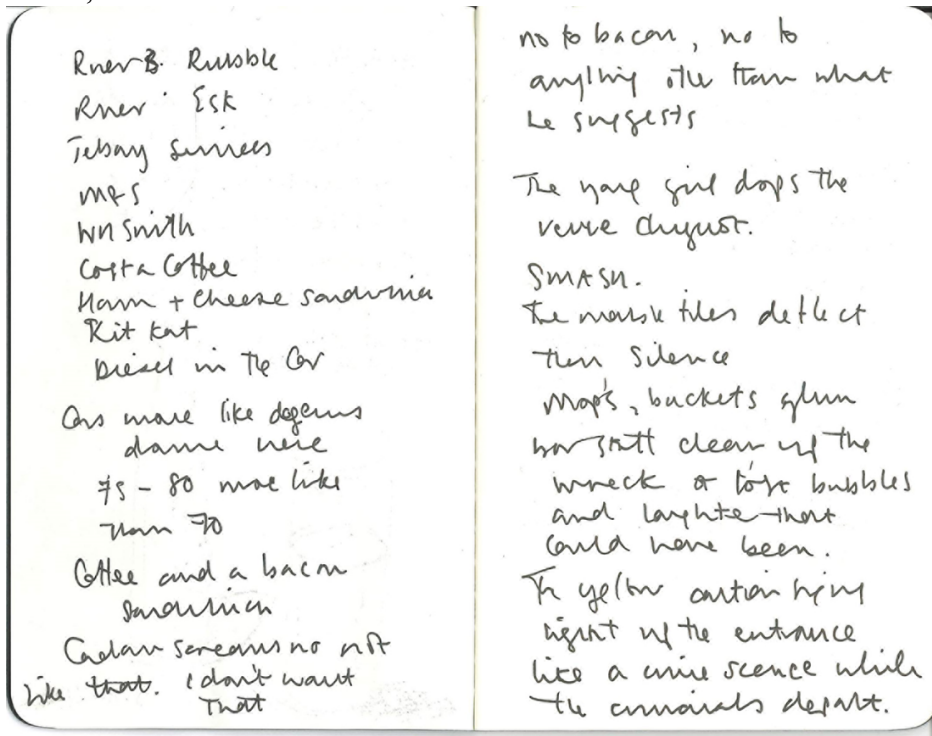 River Ribble
River Esk
Tebay Services
M&S
WH Smith
Costa Coffee
Ham + Cheese Sandwhich
Kit Kat
Diesel in the Car
Cars move like
down here
75 - 80 more like
than 70
Coffee and a bacon
Sandwhich
screams no not
like that. I don't want
That
no to bacon, no to
anything other than what
he suggests
The young girl drops the
SMASH.
The marble tiles deflect
then Silence
Mop's, buckets glum
bar staff clean up the
wreck of lost bubbles
and laughter that
could have been.
The yellow caution
light up the entrance
like a crime scence while
the criminals depart.